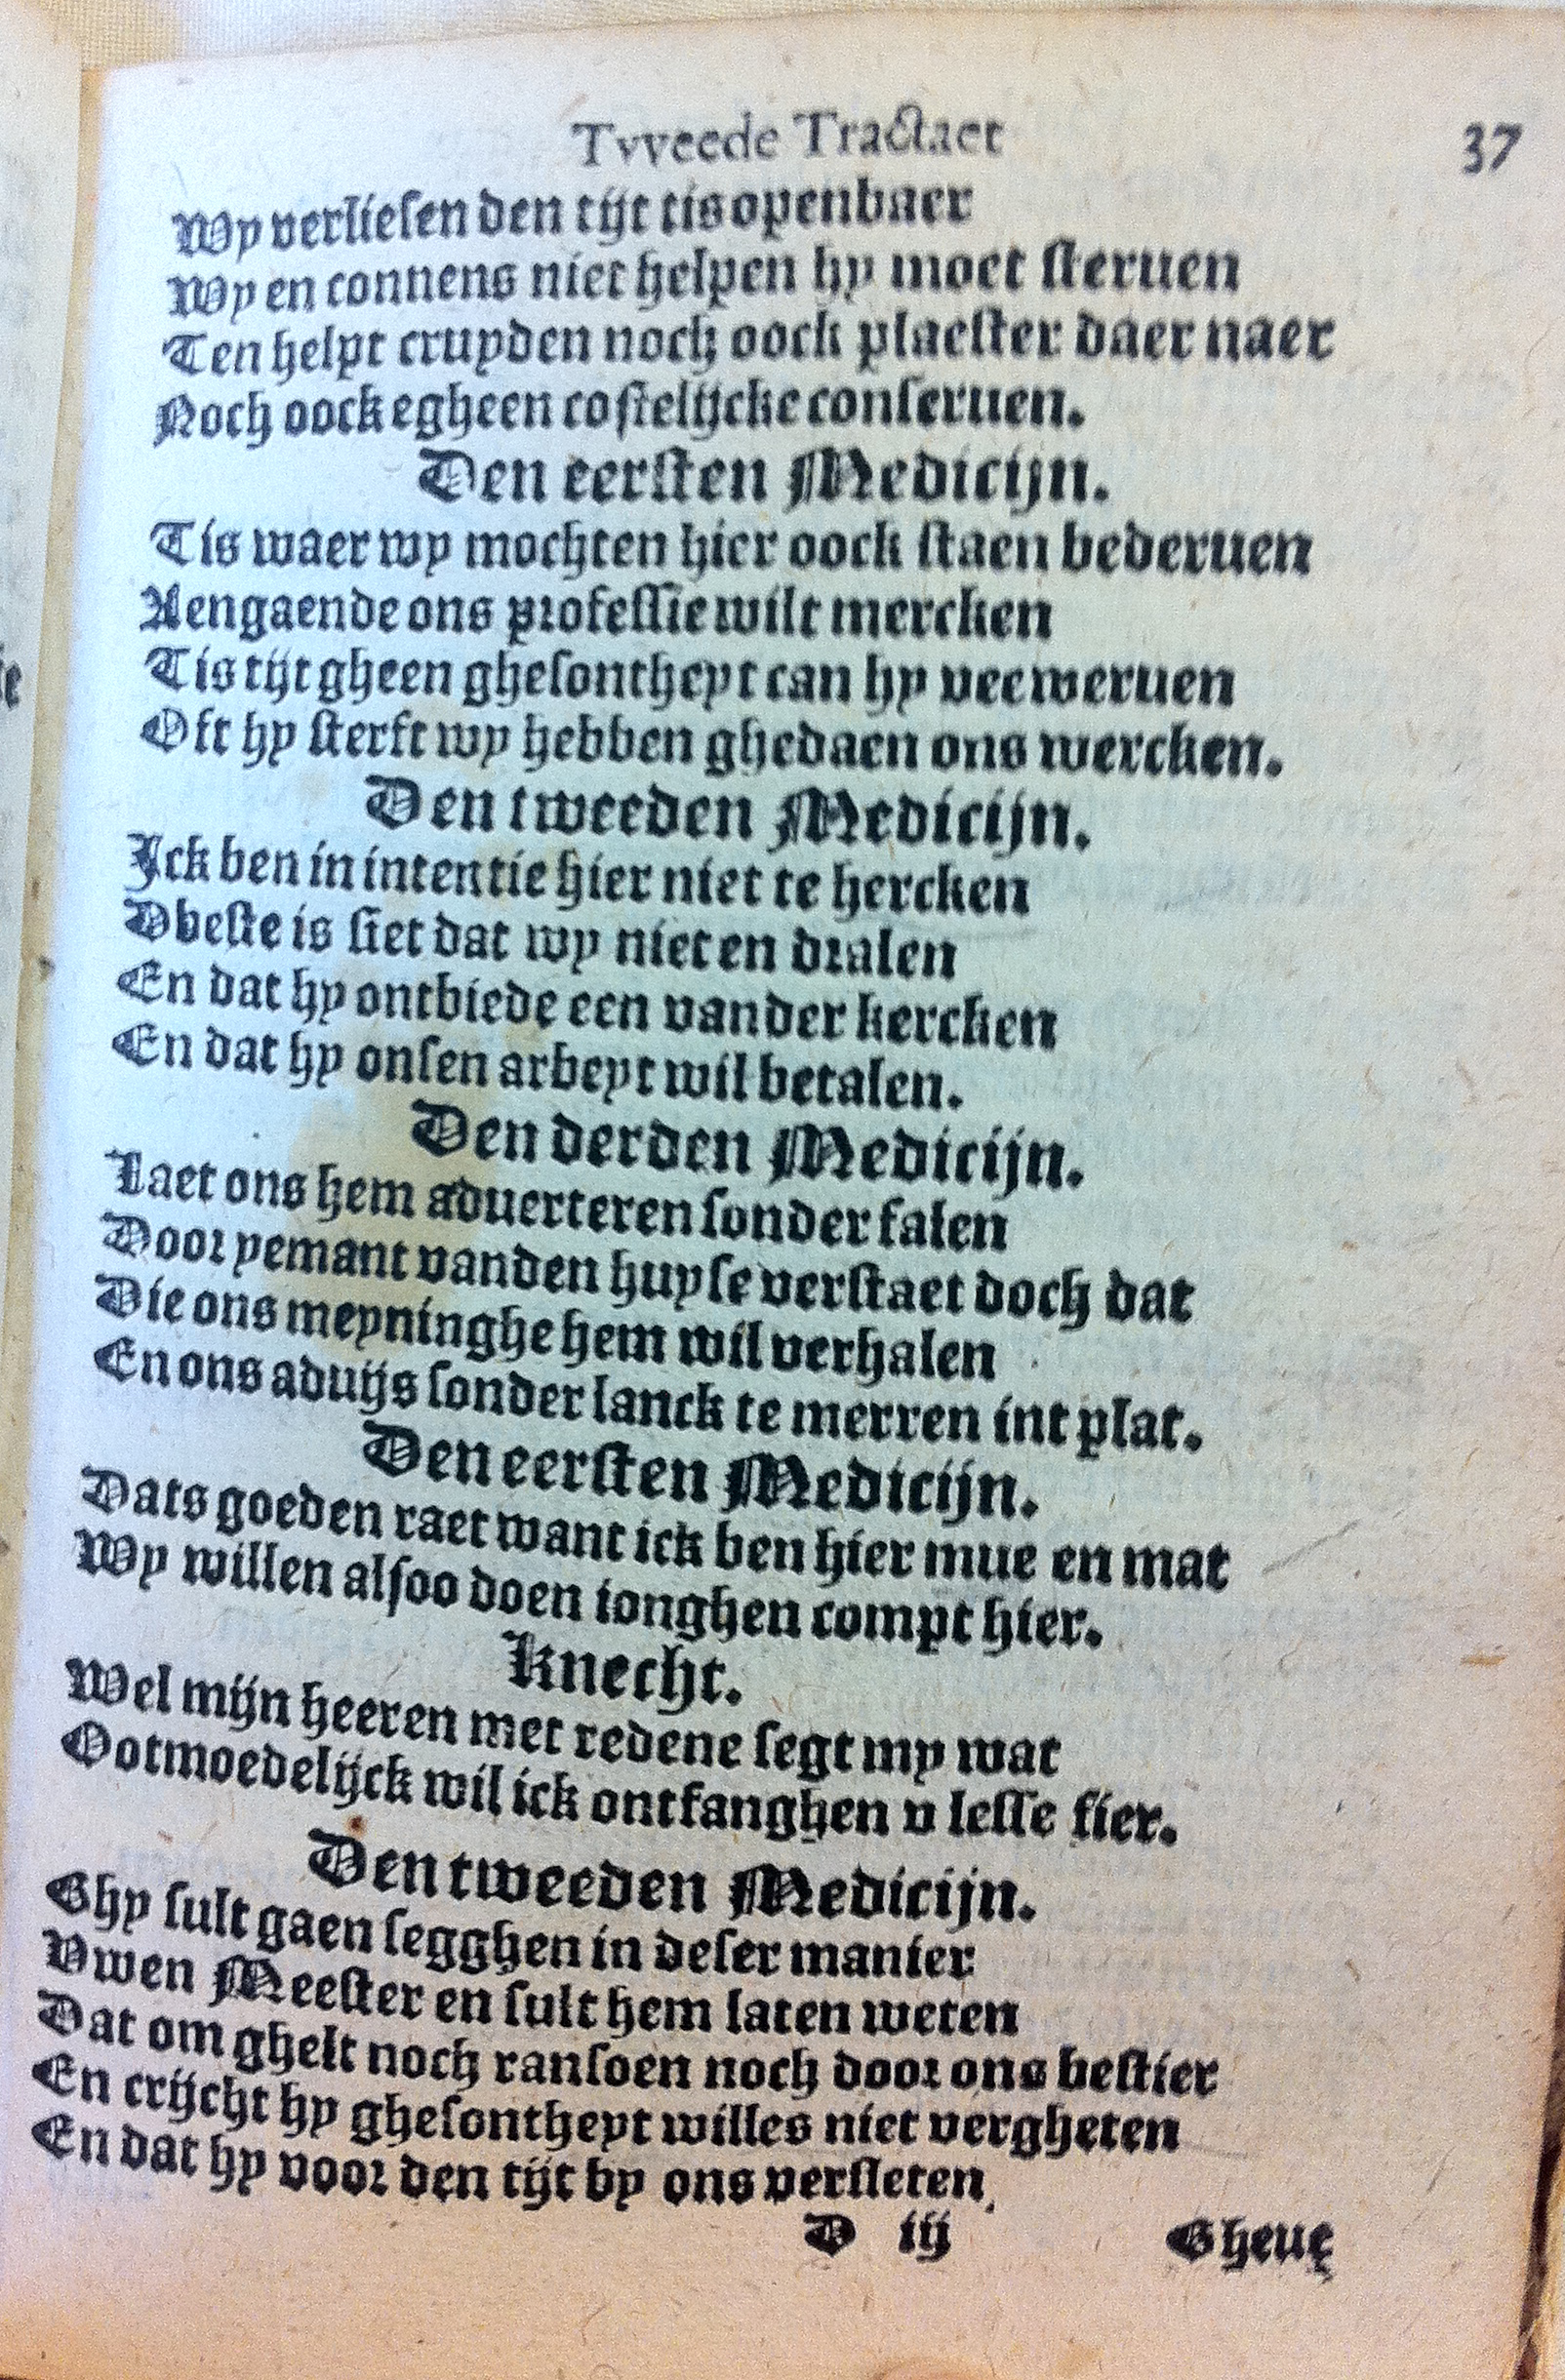 Tvveede Tractaet 37
Wy verliesen den tijt tis openbaer
Wy en connens niet helpen hy moet steruen
Ten helpt cruyden noch oock plaester daer naer
Noch oock egheen costelijcke conseruen.
Den eersten Medicijn.
Tis waer wy mochten hier oock staen bederuen
Aengaende ons professie wilt mercken
Tis tijt gheen ghesontheyt can hy verweruen
Oft hy sterft wy hebben ghedaen ons wercken.
Den tweeden Medicijn.
Ick ben in intentie hier niet te hercken
Dbeste is siet dat wy niet en dralen
En dat hy ontbiede een vander kercken
En dat hy onsen arbeyt wil betalen.
Den derden Medicijn.
Laet ons hem aduerteren sonder falen
Door yemant vanden huyse verstaet doch dat
Die ons meyninghe hem wil verhalen
En ons aduijs sonder lanck te merren int plat.
Den eersten Medicijn.
Dats goeden raet want ick ben hier mue en mat
Wy willen alsoo doen ionghen compt hier.
Knecht.
Wel mijn heeren met redene segt my wat
Ootmoedelijck wil ick ontfanghen v lesse fier.
Den tweeden Medicijn.
Ghy sult gaen segghen in deser manier
Vwen Meester en sult hem laten weten
Dat om ghelt noch ransoen noch door ons bestier
En crijcht hy ghesontheyt willes niet vergheten
En dat hy voor den tijt by ons versleten,
D iij Gheue